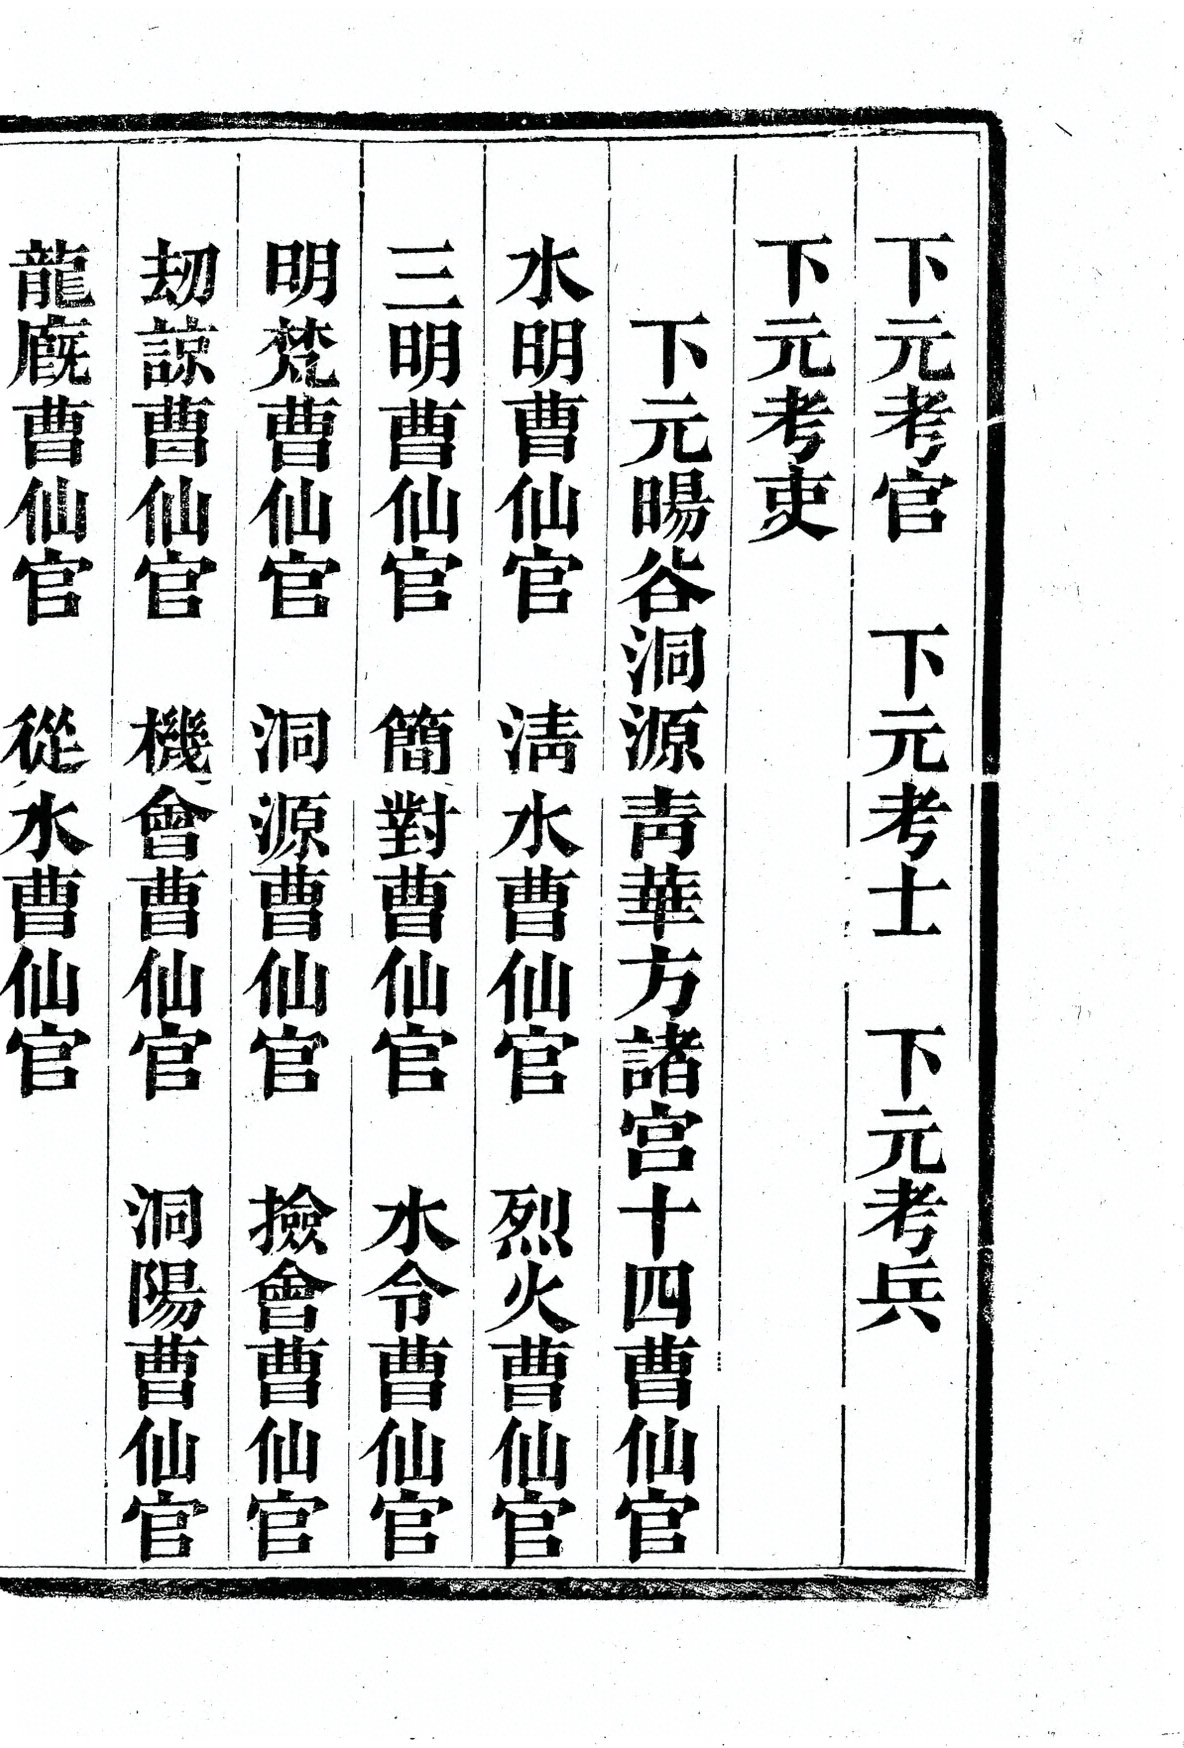 下元考官　下元考士　下元考兵
下元考吏
下元暘谷洞源青華方諸宮十四曹仙官
水明曹仙官　淸水曹仙官　烈火曹仙官
三明曹仙官　簡對曹仙官　水令曹仙官
明梵曹仙官　洞源曹仙官　撿會曹仙官
刼諒曹仙官　機會曹仙官　洞陽曹仙官
龍廐曹仙官　從水曹仙官